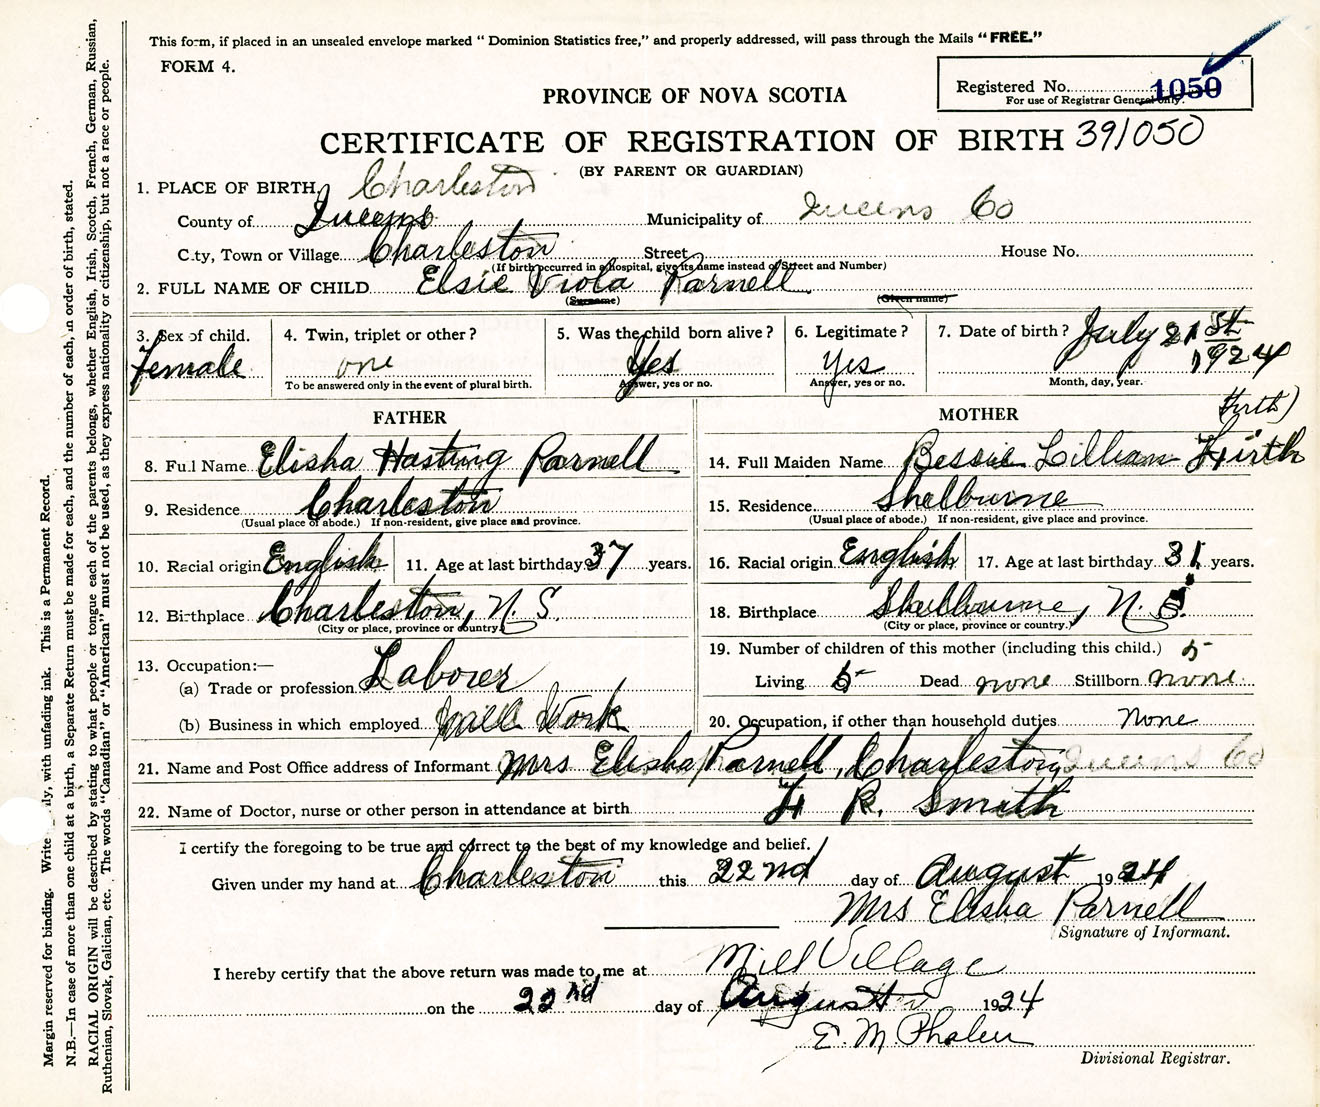 This form, if placed in an unsealed envelope marked " Dominion Statistics free," and properly addressed, will pass through the Mails "FREE."
FORM 4.
Registered No. 1050
For use of Registrar General only.
PROVINCE OF NOVA SCOTIA
CERTIFICATE OF REGISTRATION OF BIRTH 391050
(BY PARENT OR GUARDIAN)
1. PLACE OF BIRTH, Charleston
County of Queens Municipality of Queens Co
City, Town or Village Charleston Street House No.
(If birth occurred in a hospital, give its name instead of Street and Number)
2. FULL NAME OF CHILD Elsie Viola Parnell
(Surname) (Given name)
3. Sex of child. 4. Twin, triplet or other? 5. Was the child born alive? 6. Legitimate? 7. Date of birth? July 21st
Female one Yes Yes 1924
To be answered only in the event of plural birth. Answer, yes or no. Answer, yes or no. Month, day, year.
FATHER MOTHER Firth)
8. Full Name Elisha Hasting Parnell 14. Full Maiden Name Bessie Lillian Firth
9. Residence Charleston 15. Residence Shelburne
(Usual place of abode.) If non-resident, give place and province. (Usual place of abode.) If non-resident, give place and province.
10. Racial origin English 11. Age at last birthday 37 years. 16. Racial origin English 17. Age at last birthday 31 years.
12. Birthplace Charleston, N. S. 18. Birthplace Shelburne, N. S.
(City or place, province or country.) (City or place, province or country.)
13. Occupation:— 19. Number of children of this mother (including this child.) 5
(a) Trade or profession Laborer Living 5 Dead none Stillborn none
(b) Business in which employed Mill Work 20. Occupation, if other than household duties None
21. Name and Post Office address of Informant Mrs Elisha Parnell, Charleston, Queens Co
22. Name of Doctor, nurse or other person in attendance at birth F R. Smith
I certify the foregoing to be true and correct to the best of my knowledge and belief.
Given under my hand at Charleston this 22nd day of August 1924
Mrs Elisha Parnell
Signature of Informant.
I hereby certify that the above return was made to me at Mill Village
on the 22nd day of August 1924
E. M Phalen
Divisional Registrar.
Margin reserved for binding. Write ly, with unfading ink. This is a Permanent Record.
N.B.—In case of more than one child at a birth, a Separate Return must be made for each, and the number of each, in order of birth, stated.
RACIAL ORIGIN will be described by stating to what people or tongue each of the parents belongs, whether English, Irish, Scotch, French, German, Russian,
Ruthenian, Slovak, Galician, etc. The words "Canadian" or "American" must not be used, as they express nationality or citizenship, but not a race or people.